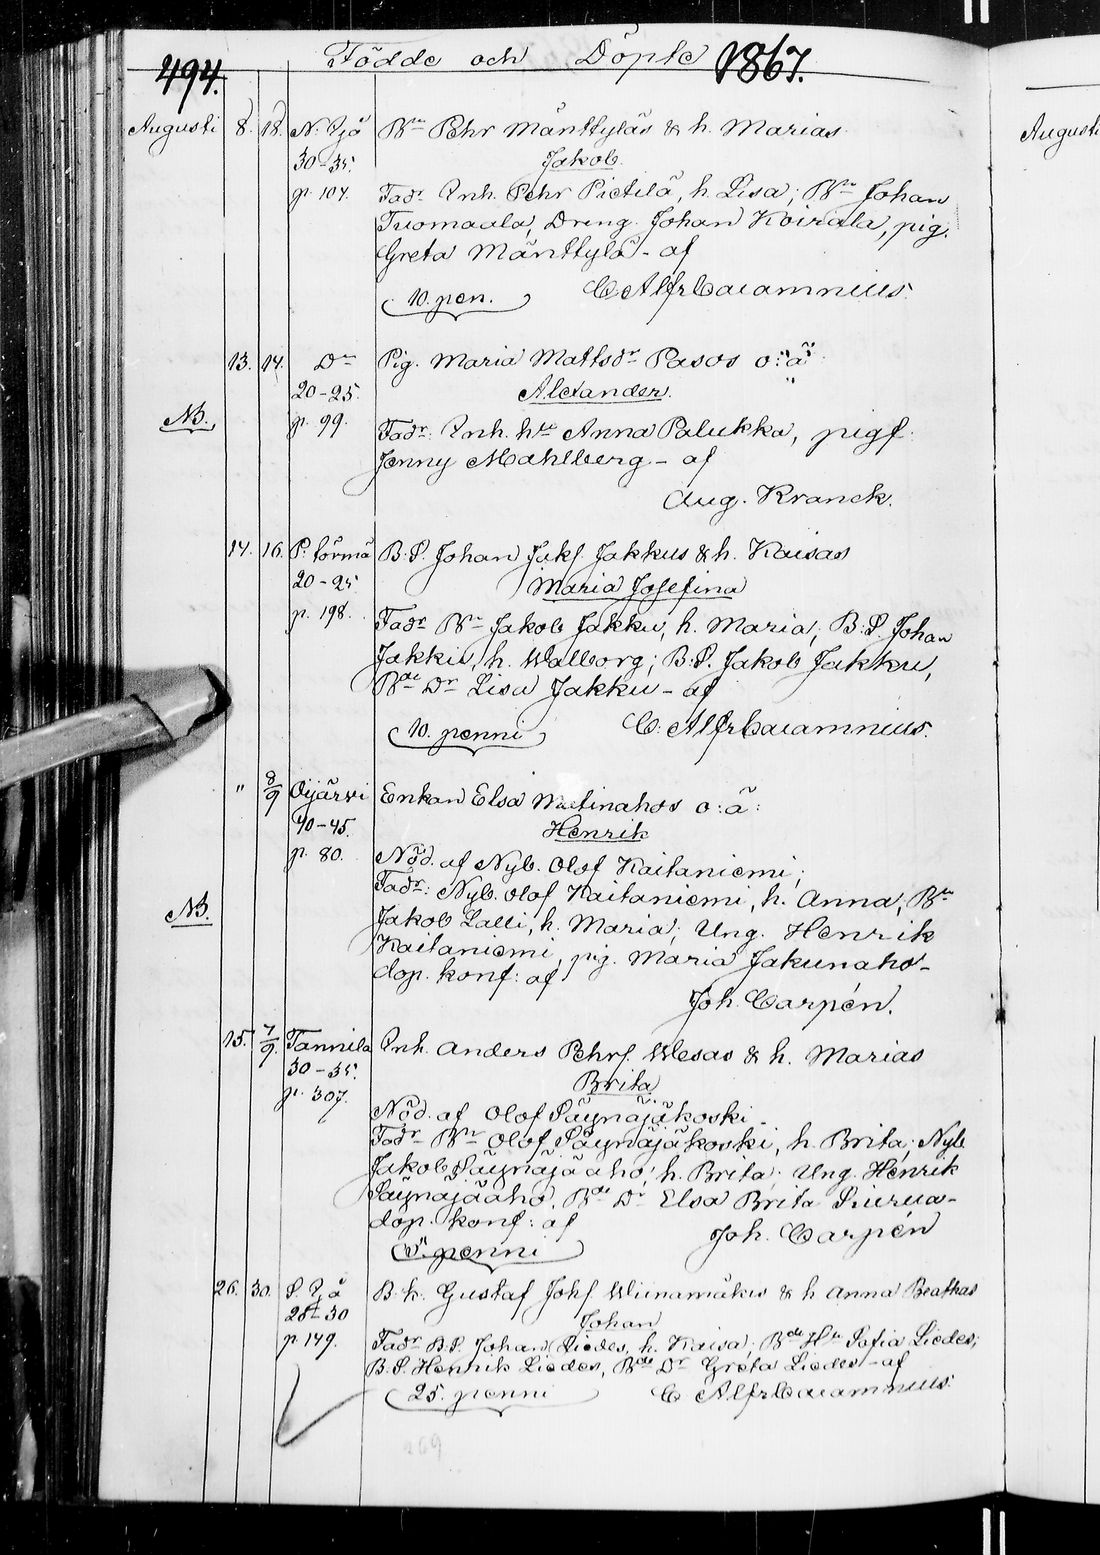 494. Födde och Döpte 1867.
Augusti 8. 18. N. Ijå Bn Pehr Mänttyläs & h. Marias Augusti
30-35. Jakob.
p. 104. Fadr Inh. Pehr Pietilä, h. Lisa; Bn Johan
Tuomaala, Dreng Johan Koirala, pig.
Greta Mänttylä - af
10. pen. C Alfr Cajamnius.
13. 14. Do Pig. Maria Mattsdr Pasos o: ä
20-25. Alexander.
NB. p. 99. Fadr: Inh. hu Anna Palukka, pigf
Jenny Mahlberg. - af
Aug. Kranck.
14. 16. P. Törmä B.S. Johan Jakf Jakkus & h. Kaisas
20-25 Maria Josefina
p. 198. Fadr Bn Jakob Jakku, h. Maria; B.S. Johan
Jakku, h. Walborg; B.S. Jakob Jakku,
Bde Dr Lisa Jakku - af
10. penni C. Alfr Cajamnius.
" 8/9 Oijärvi Enkan Elsa Matinahos o: ä:
40-45. Henrik
p. 80. Nöd. af Nyb. Olof Kaitaniemi;
Fadr: Nyb. Olof Kaitaniemi, h. Anna; Bn
NB. Jakob Lalli, h. Maria; Ung. Henrik
Kaitaniemi, pig. Maria Jakunaho -
dop. konf: af
Joh. Carpén.
15. 7/9. Tannila Inh. Anders Pehrf. Wesas & h. Marias
30-35. Brita
p. 307. Nöd. af Olof Säynäjäkoski.
Fadr Bn Olof Säynäjäkoski, h. Brita; Nyb
Jakob Säynäjäaho, h. Brita; Ung. Henrik
Säynäjäaho, Bde Dr Elsa Brita Siurua -
dop. konf: af Joh. Carpén
penni
26. 30. S. Ijå B.k. Gustaf Johf Wiinamäkis & h Anna Beathas
25-30 Johan
p. 149. Fadr B.S. Johan Liedes, h. Kaisa; Bde Hu Sofia Liedes;
B.S. Henrik Liedes, Bde Dr Greta Liedes - af
25. penni C Alfr Cajamnius.
269